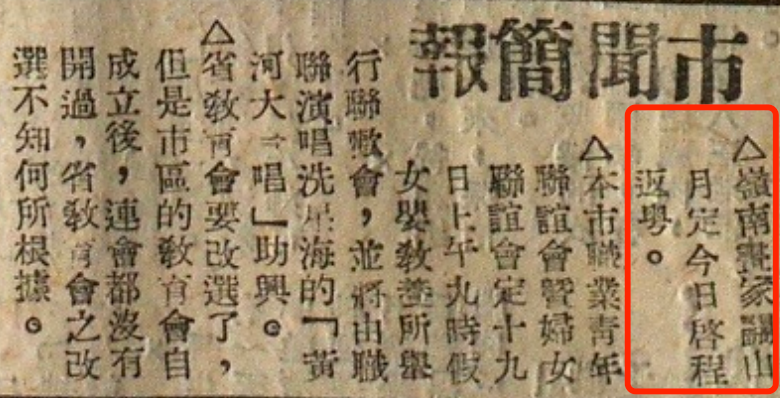 市聞簡報
△嶺南畫家關山
月定今日啓程
返粵。
△本市職業青年
聯誼會暨婦女
聯誼會定十九
日上午九時假
女嬰教養所舉
行聯歡會，並將由職
聯演唱洗星海的「黃
河大合唱」助興。
△省教育會要改選了，
但是市區的教育會自
成立後，連會都沒有
開過，省教育會之改
選不知何所根據。